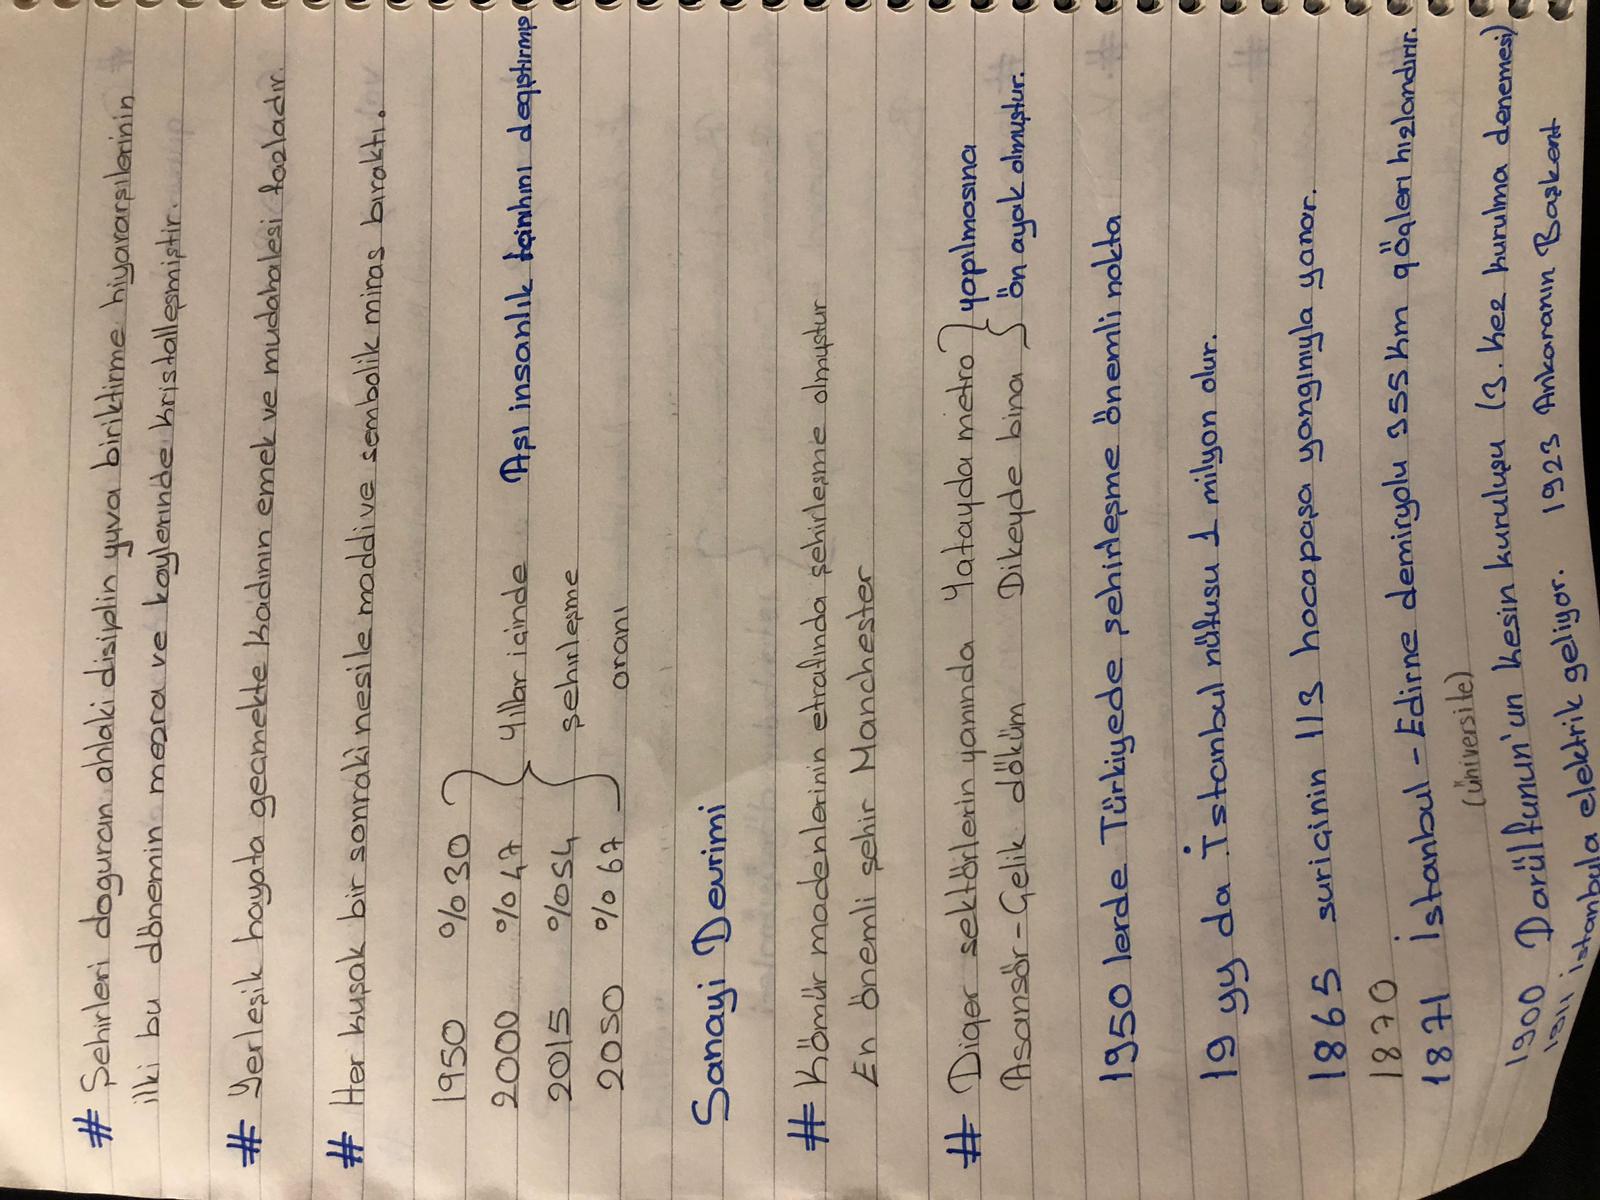 # Şehirleri doguran ahlaki disiplin yuva biriktirme hiyararşilerinin
ilki bu dönemin mezra ve koylerınde kristalleşmiştir.
# Yerleşik hayata geçmekte kadının emek ve mudahalesi fazladır.
# Her kuşak bir sonraki nesile maddi ve sembolik miras bıraktı.
1950 %30
2000 %47 Yıllar içinde Aşı insanlık tarihini degıştırmış
2015 %54 şehırleşme
2050 %67 oranı
Sanayi Devrimi
# Kömür madenlerinin etrafında şehirleşme olmuştur
En önemli şehir Manchester
# Diger sektörlerin yanında Yatayda metro yapılmasına
Asansör - Çelik döküm Dikeyde bina ön ayak olmuştur.
1950 lerde Türkiyede şehirleşme önemli nokta
19 yy da İstanbul nüfusu 1 milyon olur.
1865 suriçinin 1/3 hocapaşa yangınıyla yanar.
1870
1871 İstanbul - Edirne demiryolu 355 km göçleri hızlandırır.
(üniversite)
1900 Darülfunun'un kesin kuruluşu (3. kez kurulma denemesi)
1911 İstanbula elektrik geliyor. 1923 Ankaranın Başkent